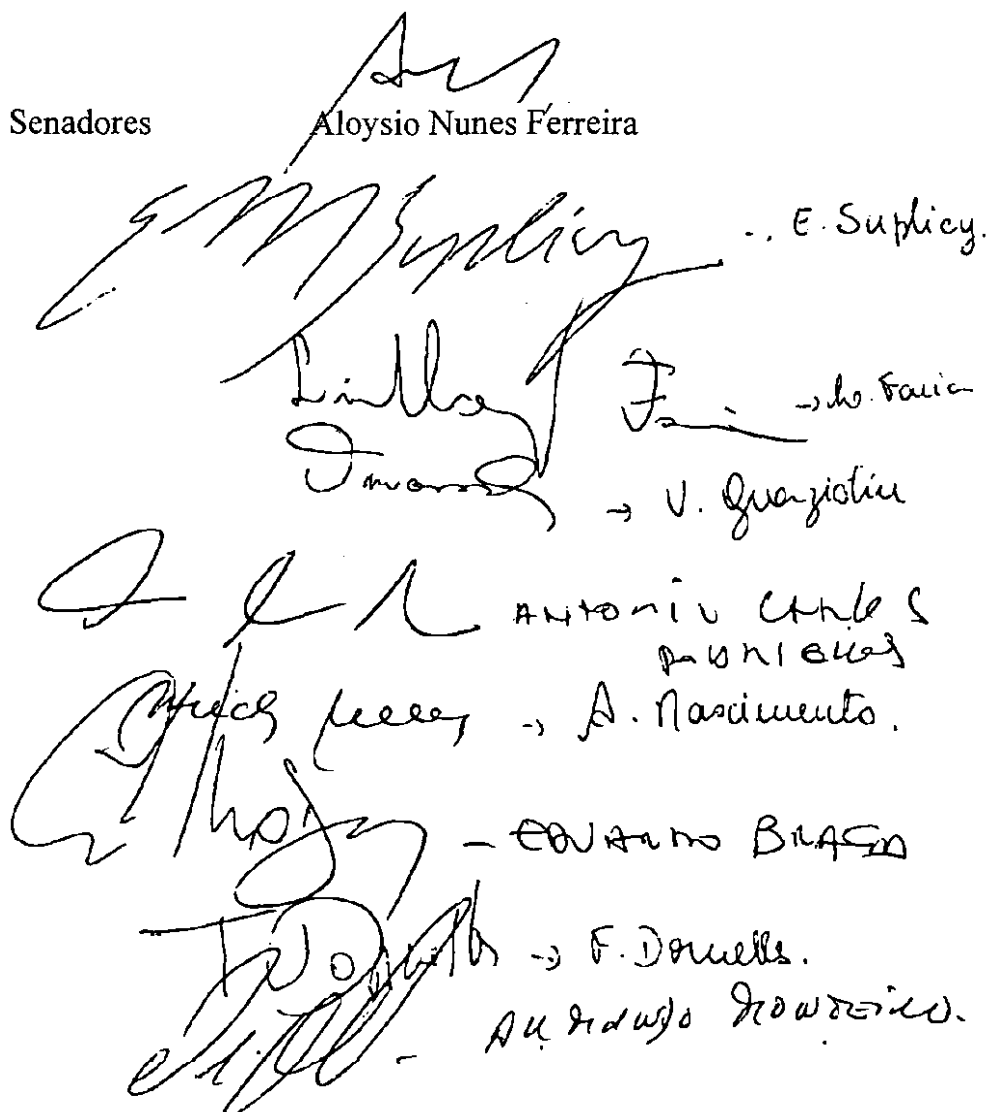 Senadores Aloysio Nunes Ferreira
E. Suplicy.
Lindbergh F → L. Faria
→ V. Graziotin
ANTONIO CARLOS
RODRIGUES
→ A. Nascimento.
- EDUARDO BRAGA
→ F. Dornelles.
- ARMANDO MONTEIRO.